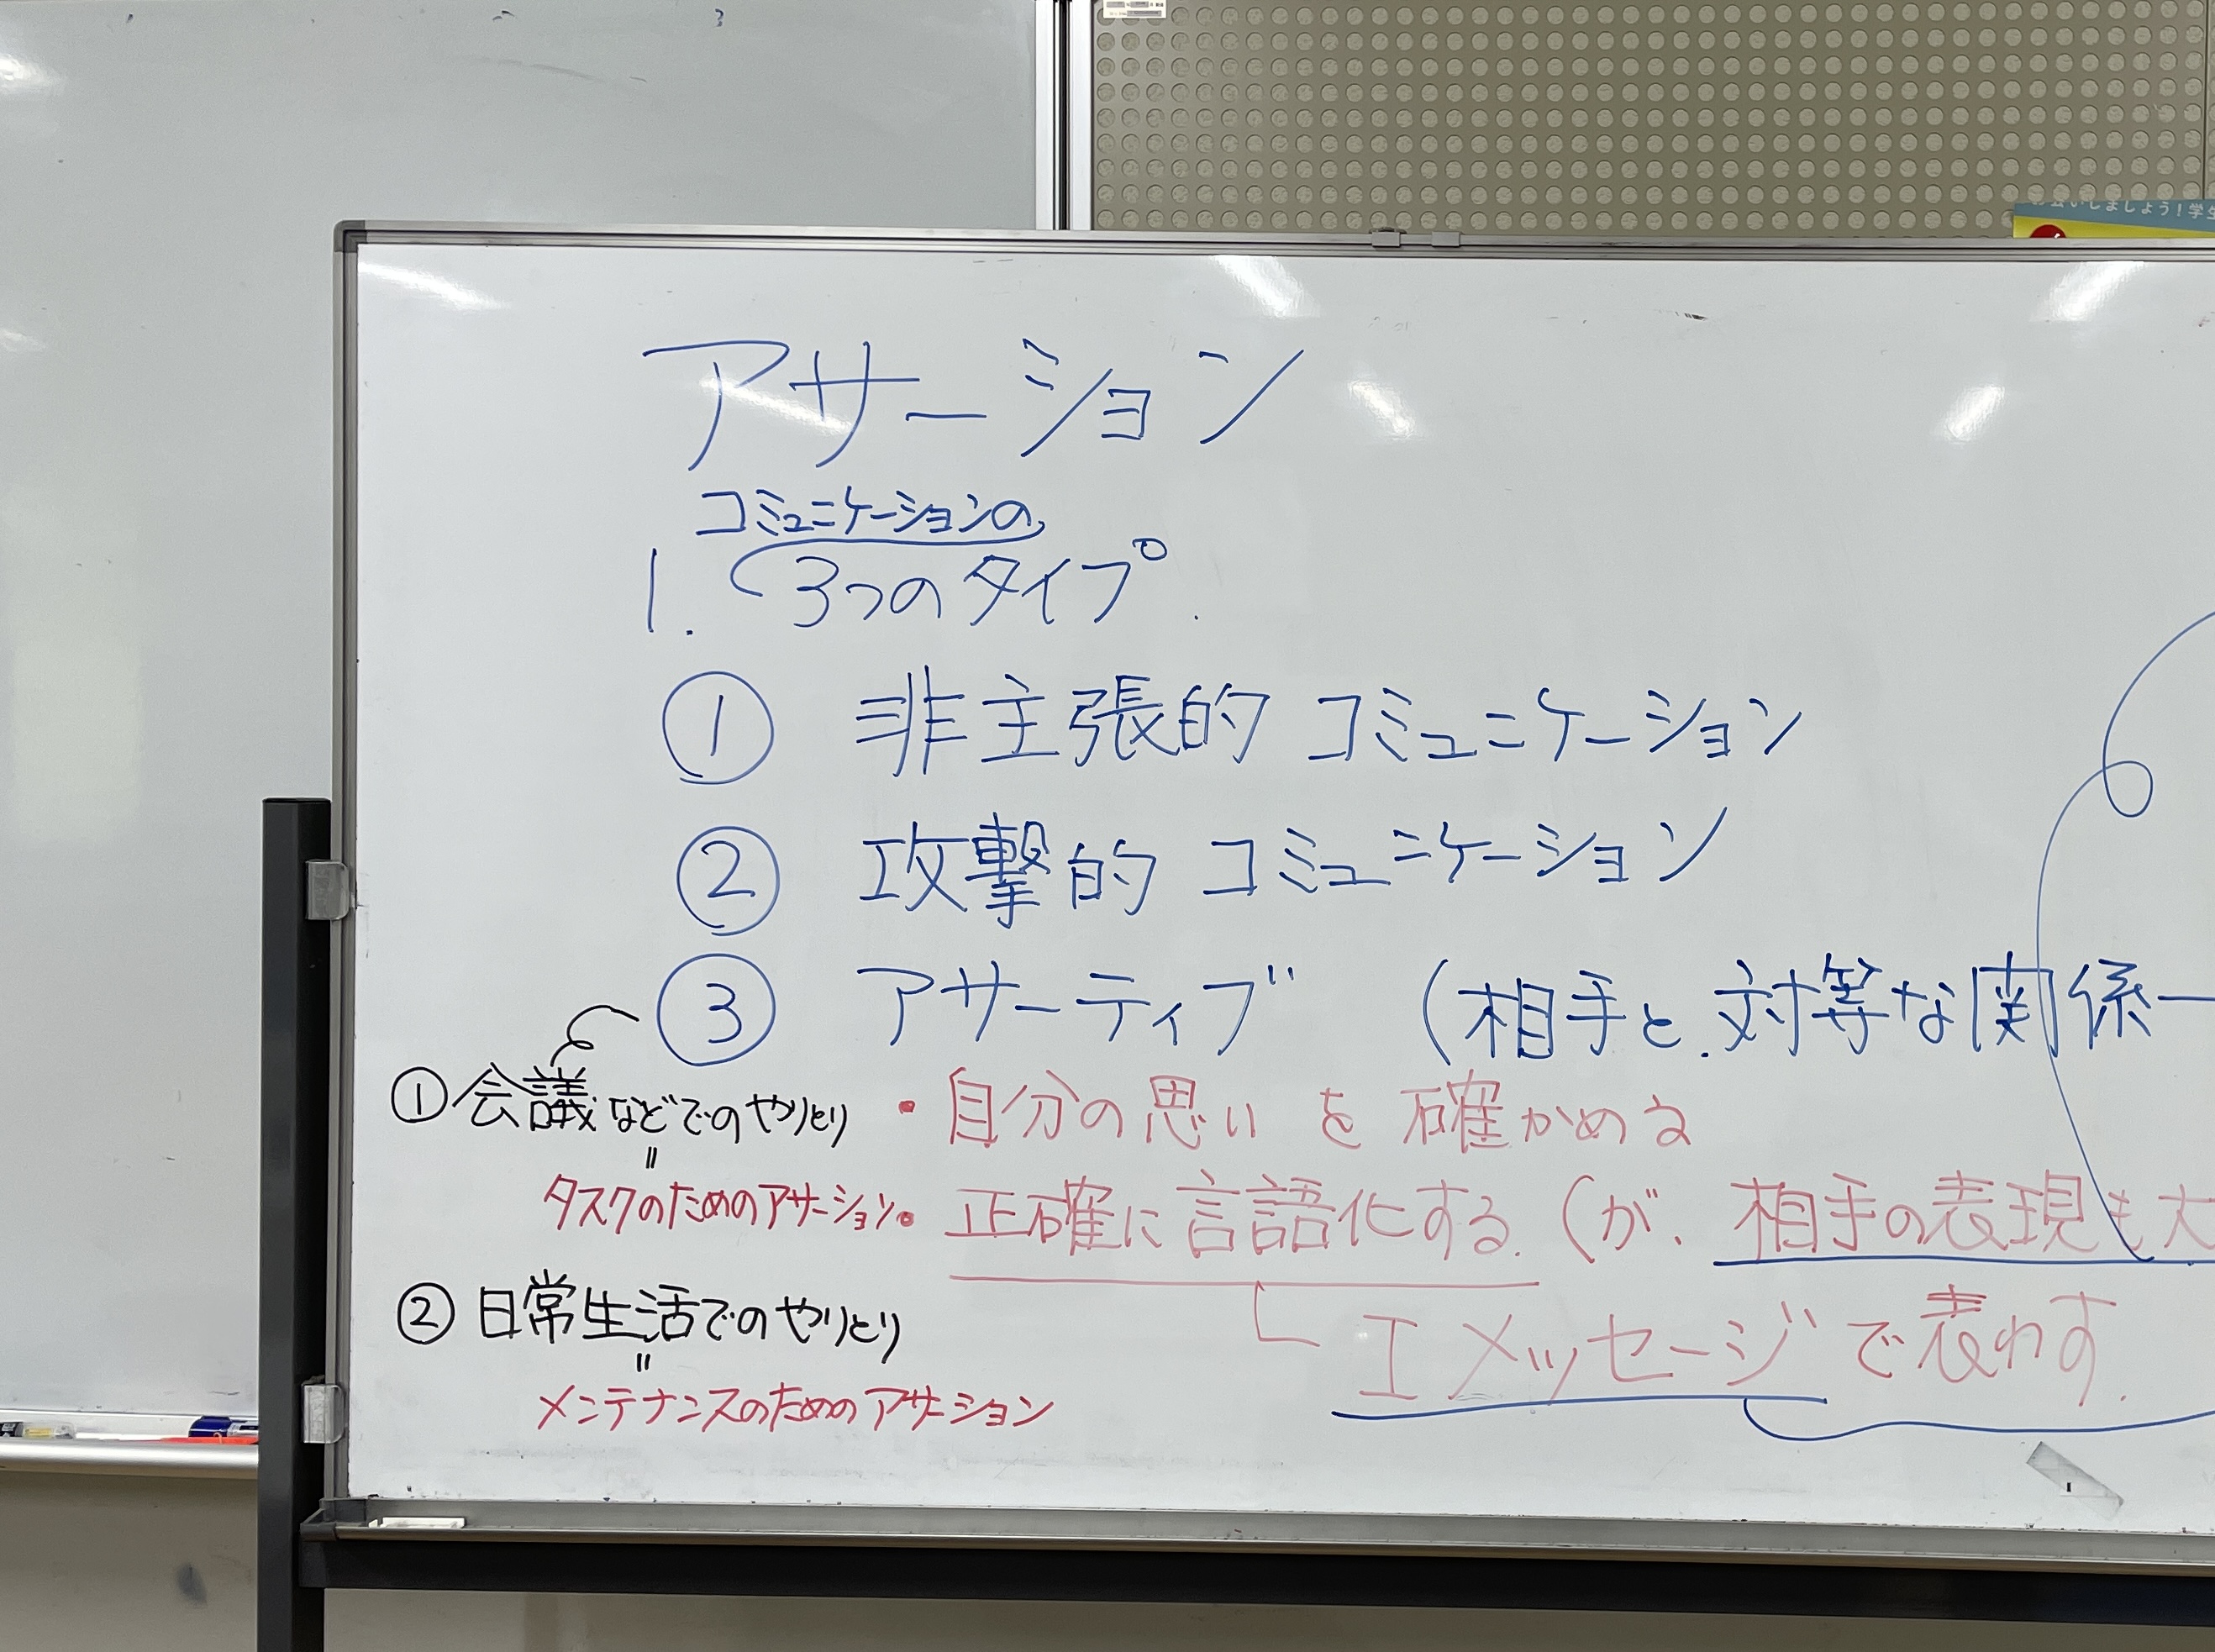 お会いしましょう！学生
アサーション
コミュニケーションの
1. 3つのタイプ.
① 非主張的 コミュニケーション
② 攻撃的 コミュニケーション
③ アサーティブ (相手と.対等な関係一
① 会議などでのやりとり
=
タスクのためのアサーション
② 日常生活でのやりとり
=
メンテナンスのためのアサーション
・自分の思い を 確かめる
・正確に言語化する. (が、相手の表現も大
I メッセージで表わす.